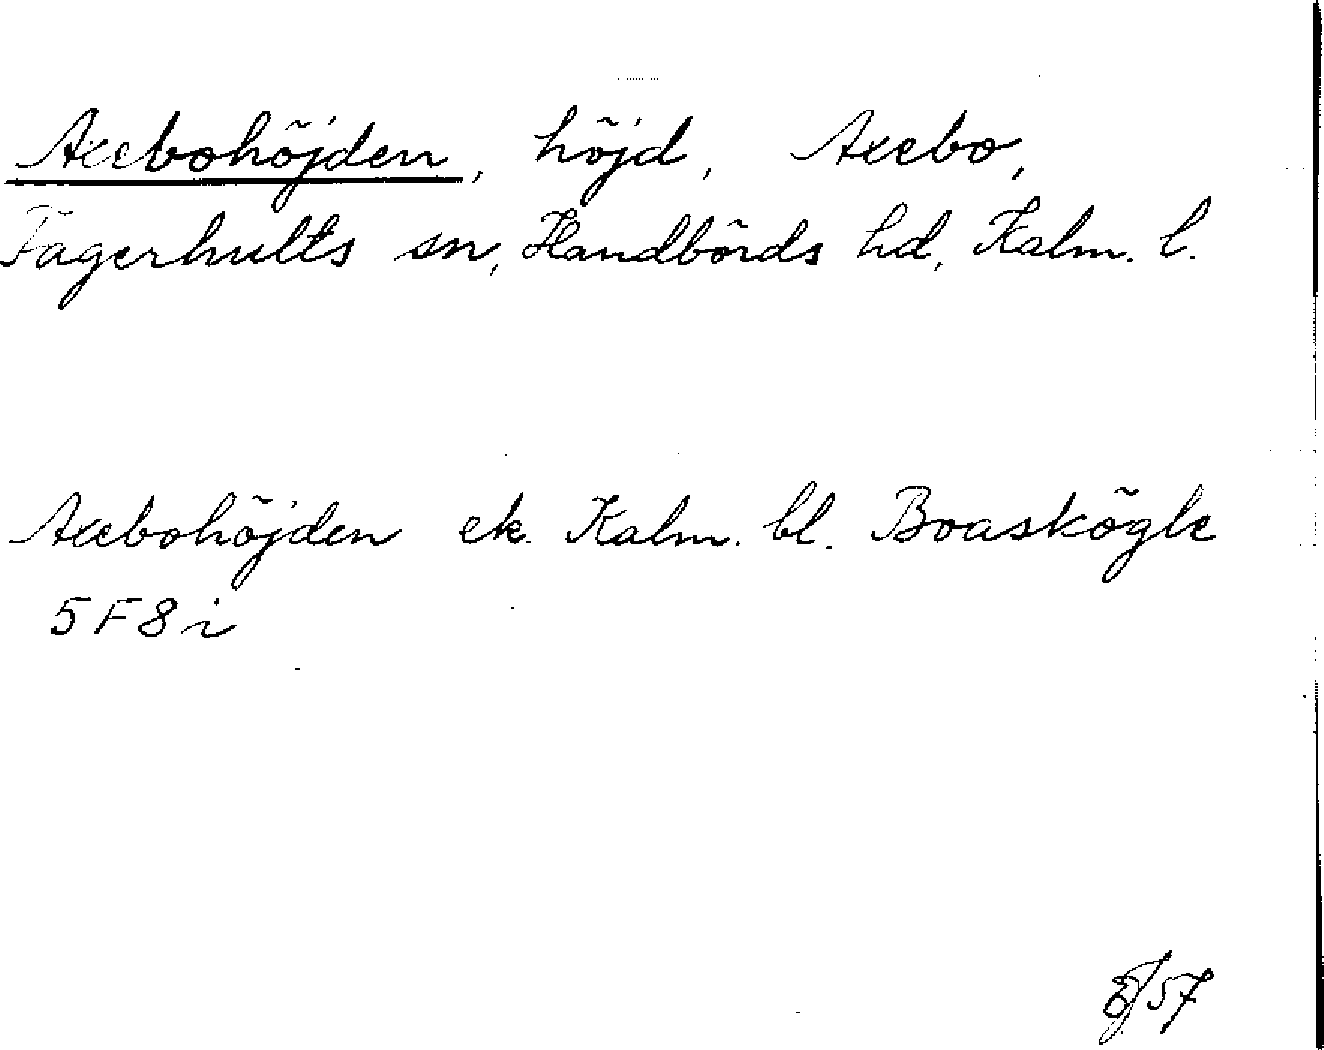 Axebohöjden, höjd, Axebo,
Fågerhults sn, Handbörds hd, Kalm. l.
Axebohöjden ek. Kalm. bl. Boaskögle
5F8i
/57